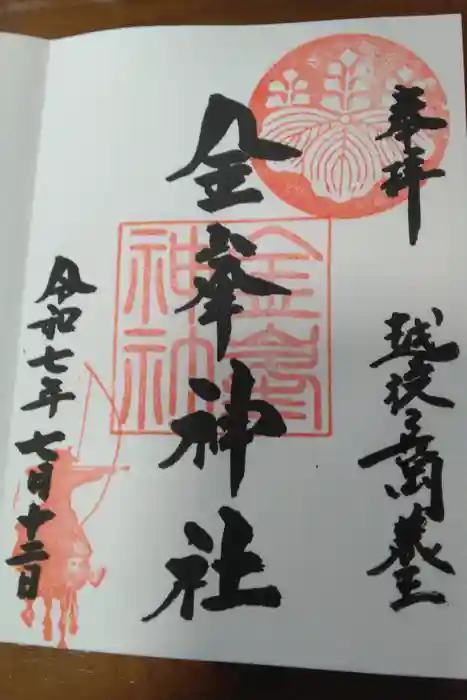 奉拝
越後長岡蔵王
金峯神社
金峯
神社
令和七年七月十二日